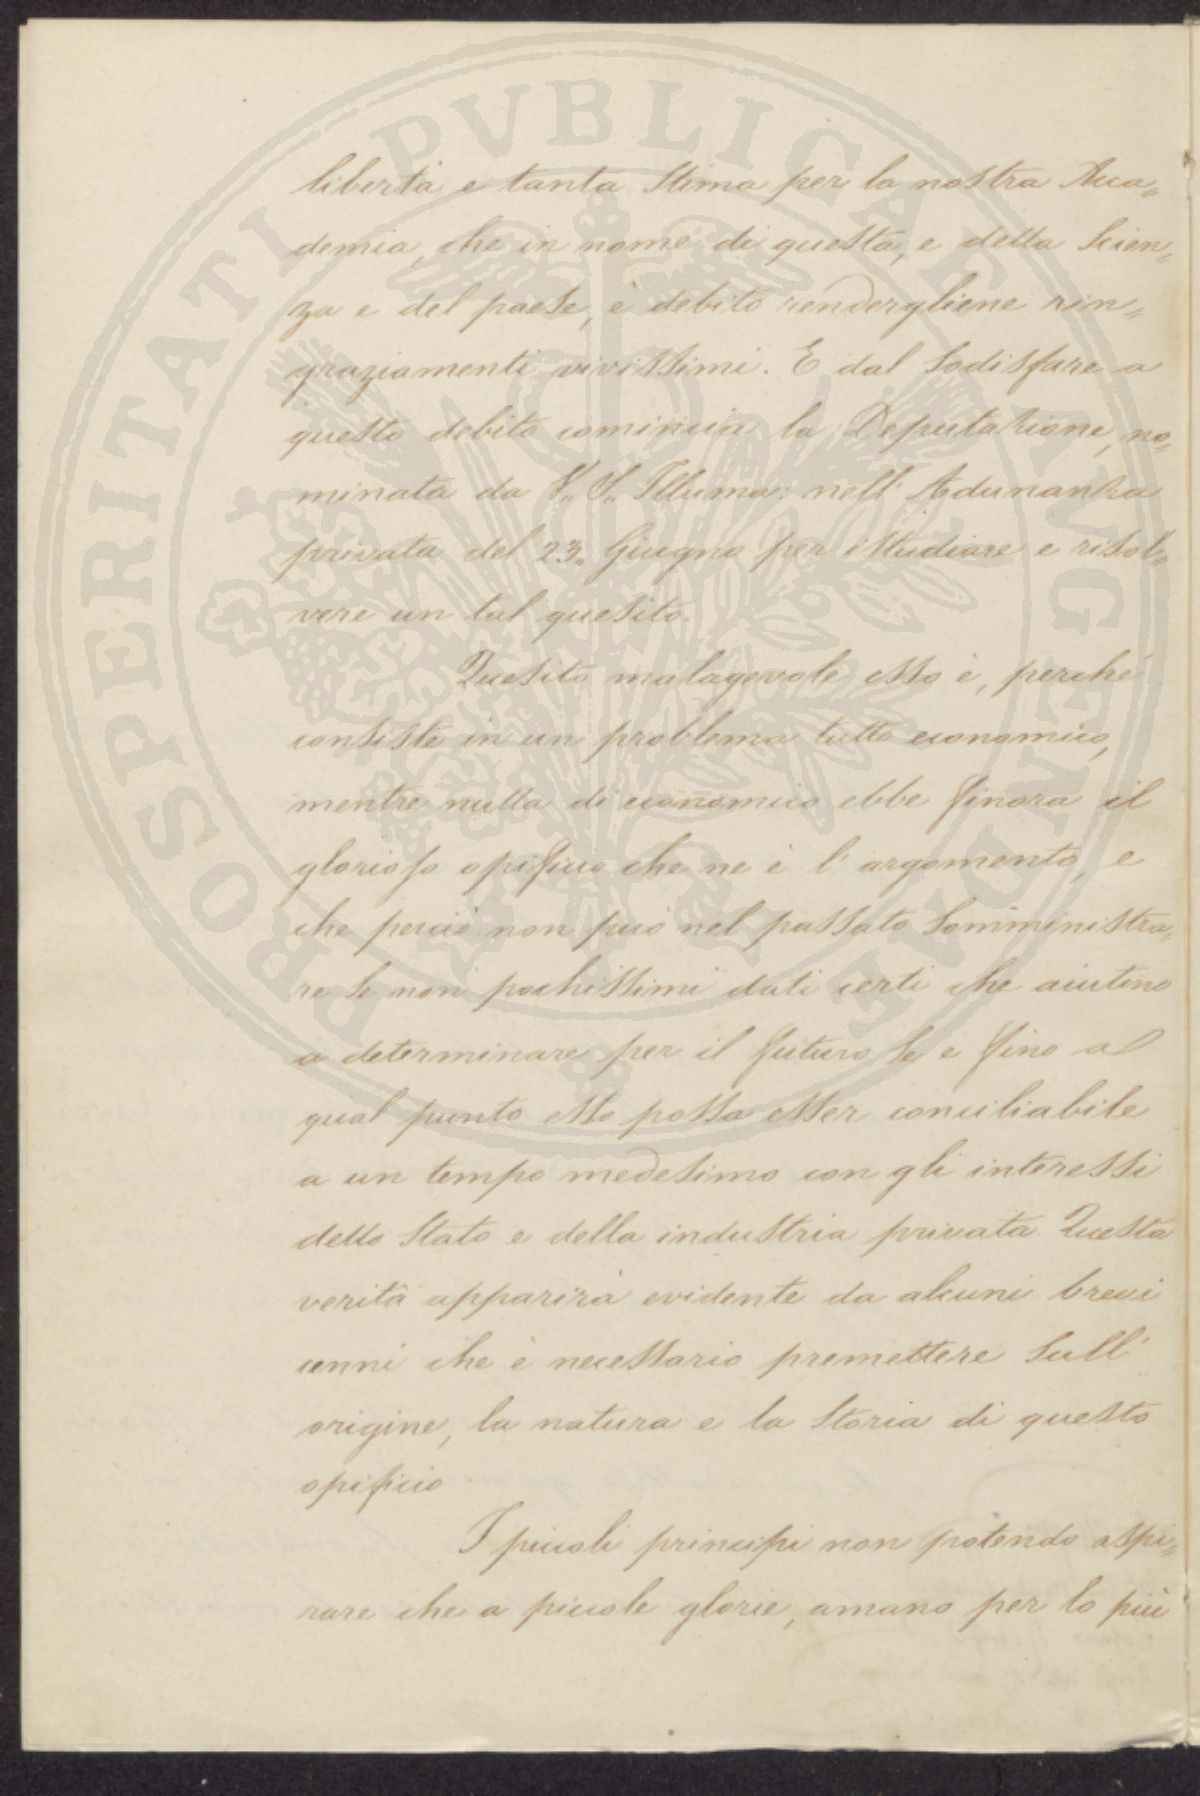 PROSPERITATI PVBLICAE AVGENDAE
libertà e tanta stima per la nostra Acca=
demia, che in nome di questa, e della Scien=
za e del paese, è debito rendergliene rin=
graziamenti vivissimi. E dal sodisfare a
questo debito comincia la Deputazione, no=
minata da V. S. Illuma: nell'Adunanza
privata del 23. Giugno per istudiare e risol=
vere un tal quesito.
Quesito malagevole esso è, perchè
consiste in un problema tutto economico,
mentre nulla di economico ebbe finora il
glorioso opificio che ne è l'argomento, e
che perciò non può nel passato somministra=
re se non pochissimi dati certi che aiutino
a determinare per il futuro se e fino al
qual punto esso possa esser conciliabile
a un tempo medesimo con gli interessi
dello Stato e della industria privata. Questa
verità apparirà evidente da alcuni brevi
cenni che è necessario premettere sull'
origine, la natura e la storia di questo
opificio.
I piccoli principi non potendo aspi=
rare che a piccole glorie, amano per lo più